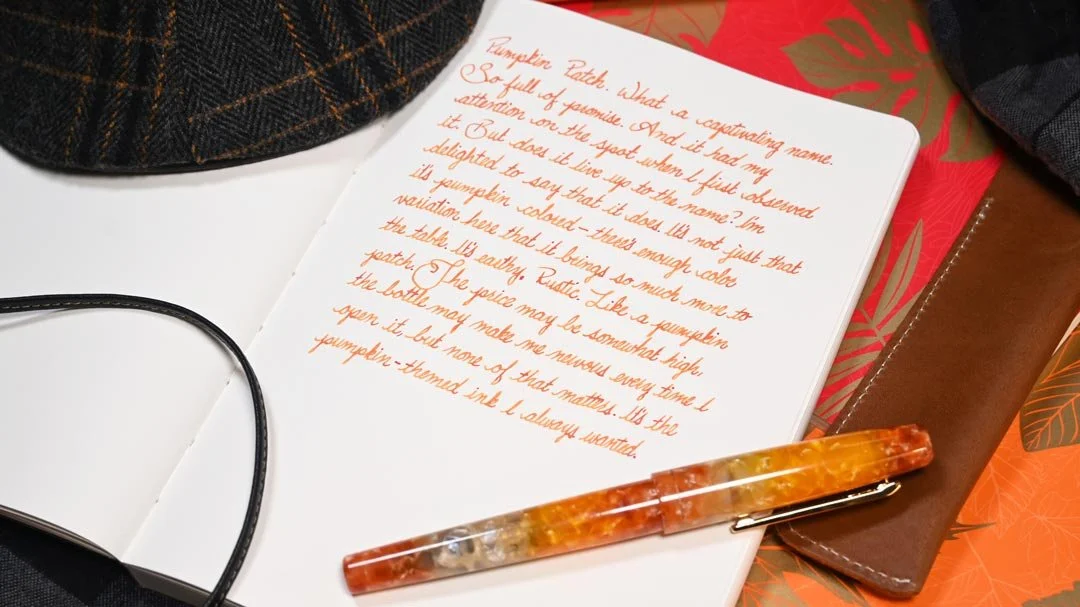 Pumpkin Patch. What a captivating name.
So full of promise. And it had my
attention on the spot when I first observed
it. But does it live up to the name? I'm
delighted to say that it does. It's not just that
it's pumpkin colored - there's enough color
variation here that it brings so much more to
the table. It's earthy. Rustic. Like a pumpkin
patch. The price may be somewhat high,
the bottle may make me nervous every time I
open it, but none of that matters. It's the
pumpkin-themed ink I always wanted.